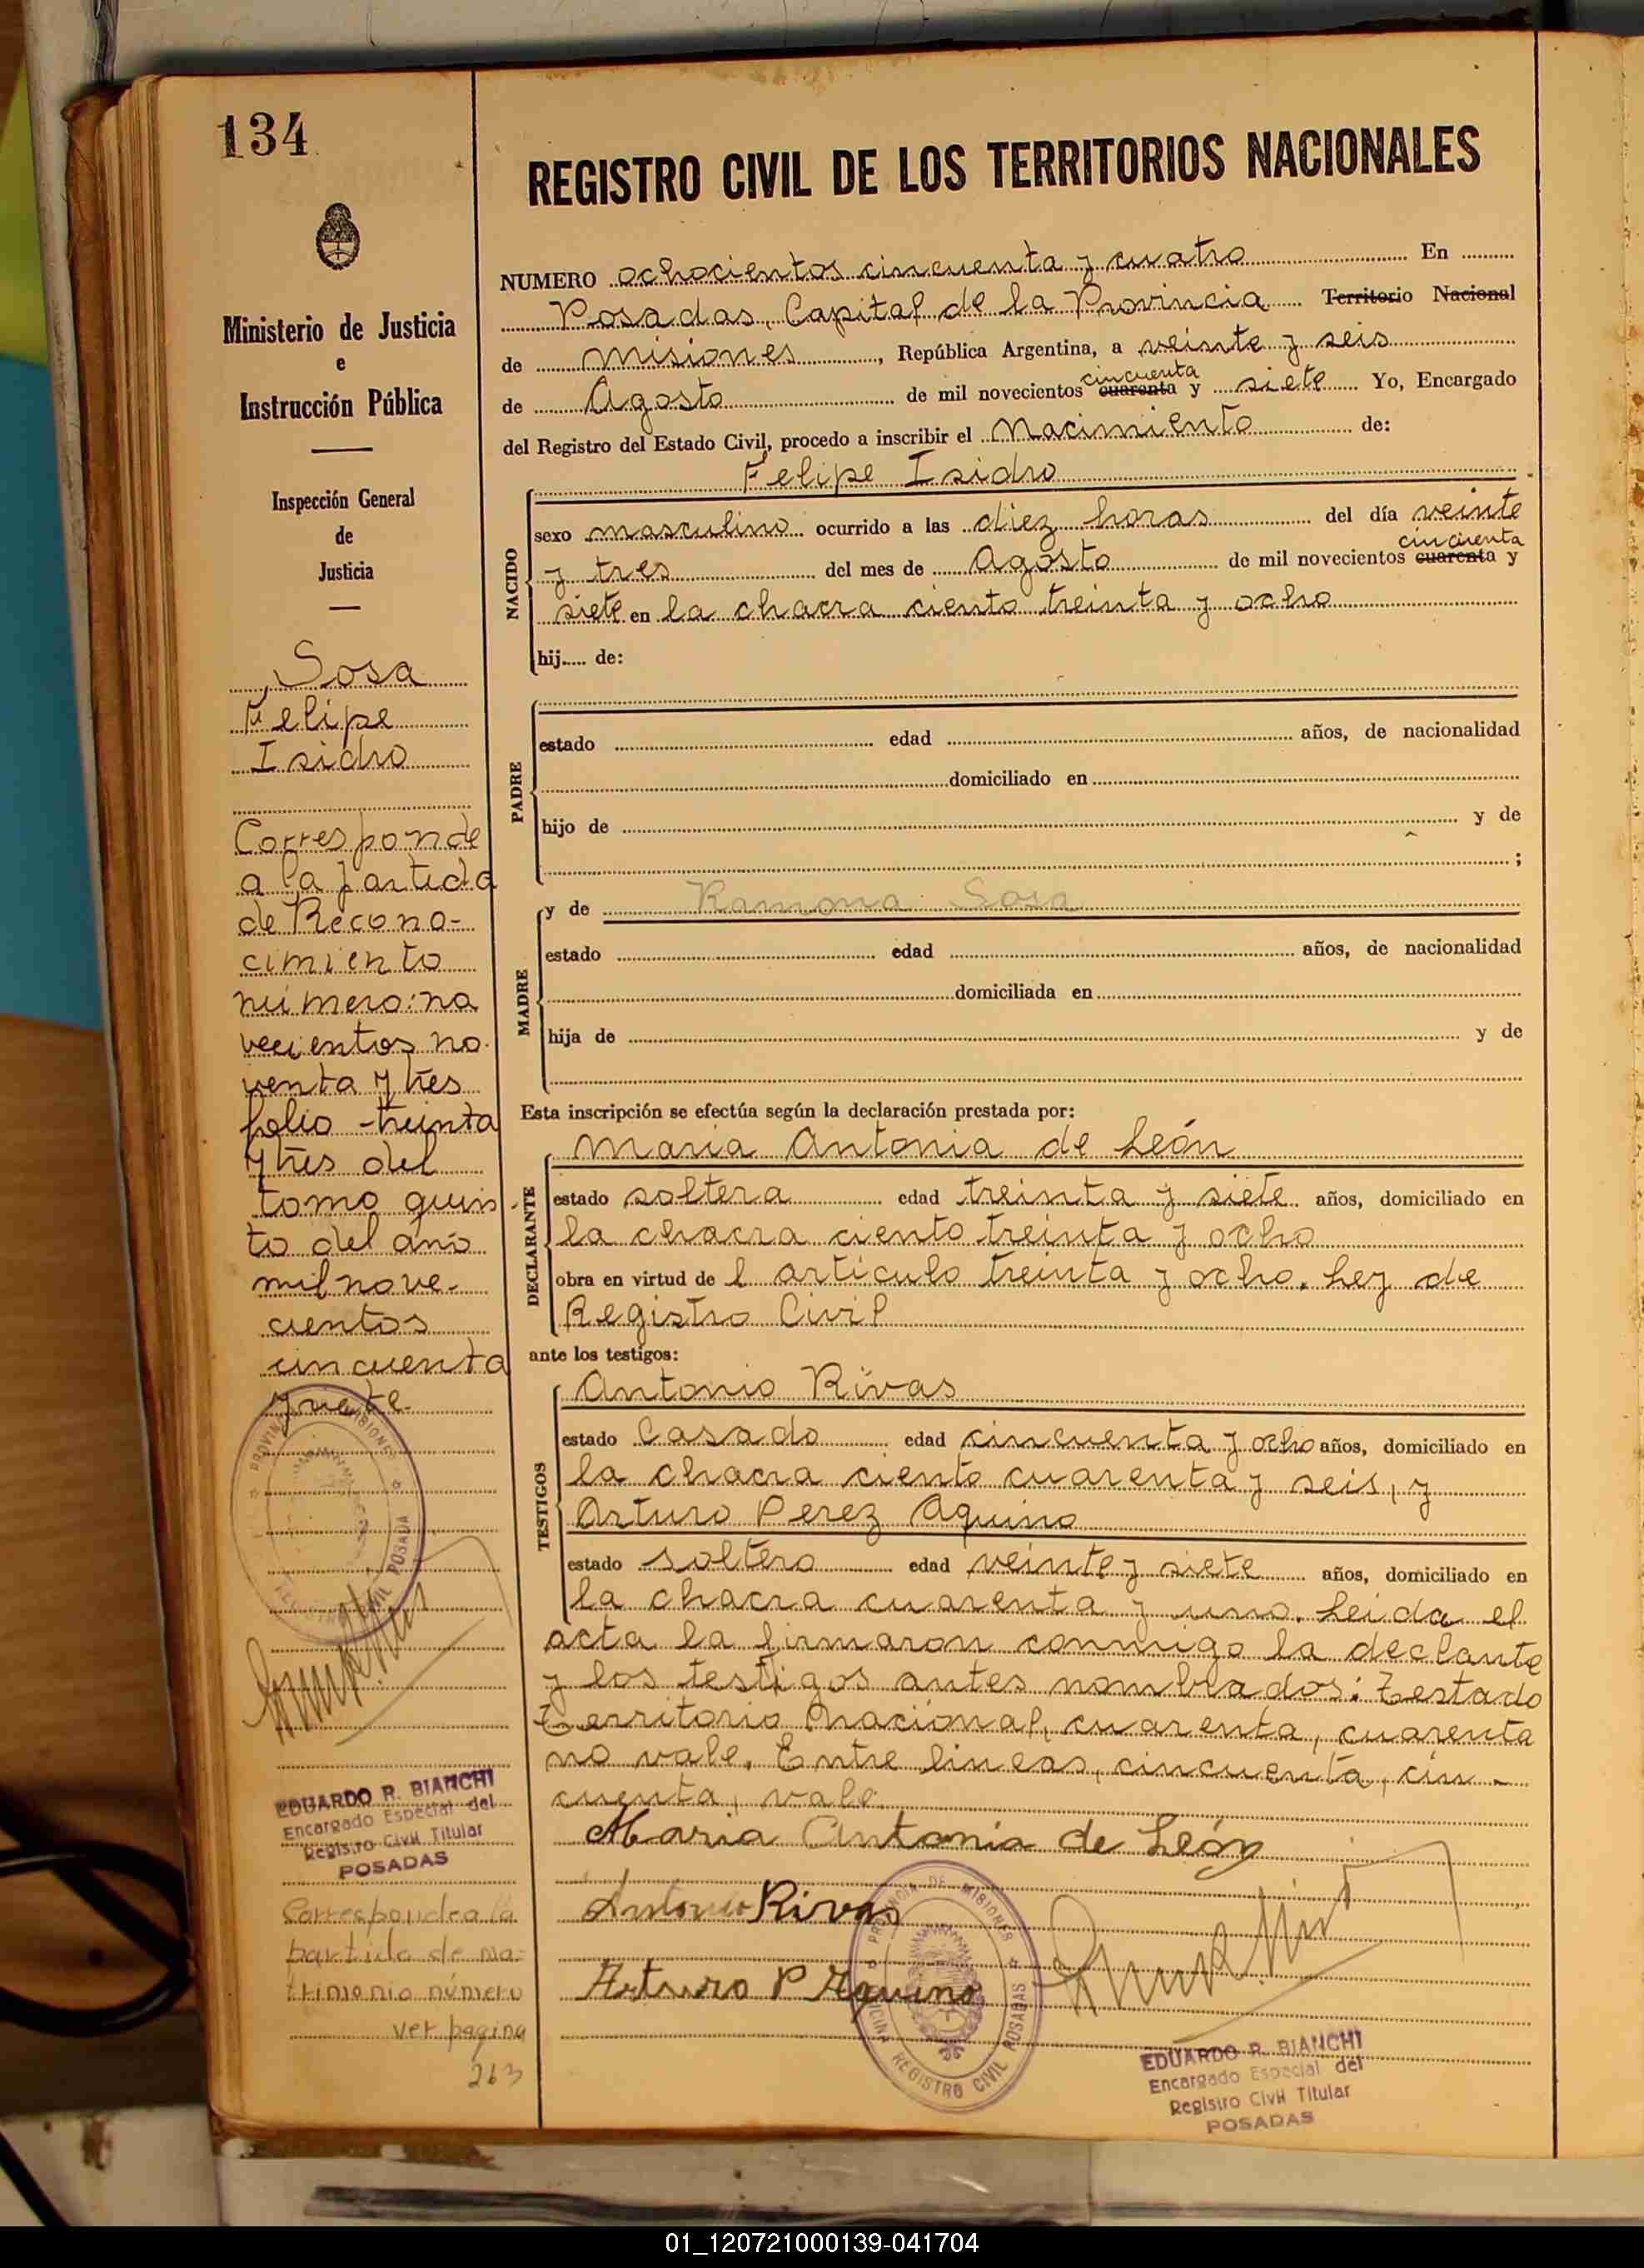 134
Ministerio de Justicia
e
Instrucción Pública
Inspección General
de
Justicia
Sosa
Felipe
Isidro
Corresponde
a la partida
de Recono-
cimiento
número: no
vecientos no
venta y tres
folio treinta
y tres del
tomo quin
to del año
mil nove-
cientos
cincuenta
y siete.
PROVINCIA DE MISIONES
REGISTRO CIVIL POSADAS
EDUARDO R. BIANCHI
Encargado Especial del
Registro Civil Titular
POSADAS
Corresponde a la
partida de ma-
trimonio número
ver pagina
263
REGISTRO CIVIL DE LOS TERRITORIOS NACIONALES
NUMERO ochocientos cincuenta y cuatro En
Posadas, Capital de la Provincia Territorio Nacional
de Misiones, República Argentina, a veinte y seis
cincuenta
de Agosto de mil novecientos cuarenta y siete Yo, Encargado
del Registro del Estado Civil, procedo a inscribir el Nacimiento de:
Felipe Isidro
NACIDO
sexo masculino ocurrido a las diez horas del día veinte
cincuenta
y tres del mes de Agosto de mil novecientos cuarenta y
siete en la chacra ciento treinta y ocho
hij de:
PADRE
estado edad años, de nacionalidad
domiciliado en
hijo de y de
;
MADRE
y de Ramona Sosa
estado edad años, de nacionalidad
domiciliada en
hija de y de
Esta inscripción se efectúa según la declaración prestada por:
DECLARANTE
Maria Antonia de León
estado soltera edad treinta y siete años, domiciliado en
la chacra ciento treinta y ocho
obra en virtud de l artículo treinta y ocho. Ley de
Registro Civil
ante los testigos:
TESTIGOS
Antonio Rivas
estado Casado edad cincuenta y ocho años, domiciliado en
la chacra ciento cuarenta y seis, y
Arturo Perez Aquino
estado soltero edad veinte y siete años, domiciliado en
la chacra cuarenta y uno. Leida el
acta la firmaron conmigo la declante
y los testigos antes nombrados: Testado
Territorio Nacional, cuarenta, cuarenta
no vale. Entre lineas, cincuenta, cin-
cuenta, vale.
Maria Antonia de León
Antonio Rivas
Arturo P Aquino
PROVINCIA DE MISIONES
OFICINA REGISTRO CIVIL POSADAS
EDUARDO R. BIANCHI
Encargado Especial del
Registro Civil Titular
POSADAS
01_120721000139-041704